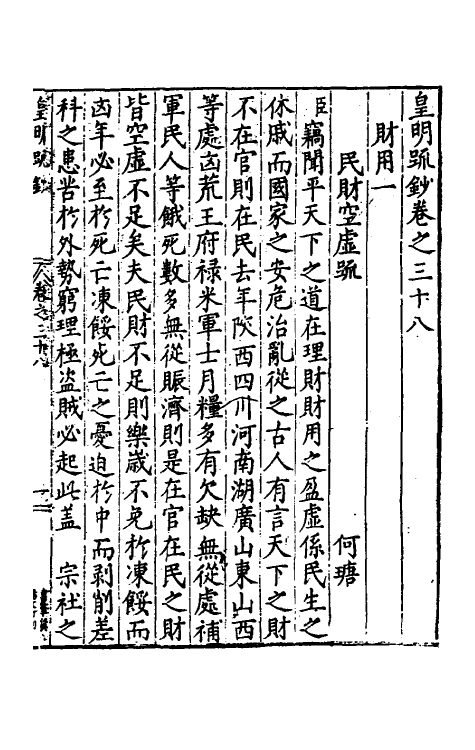 皇明疏鈔卷之三十八
財用一
民財空虛疏 何瑭
臣竊聞平天下之道在理財財用之盈虛係民生之
休戚而國家之安危治亂從之古人有言天下之財
不在官則在民去年陜西四川河南湖廣山東山西
等處凶荒王府祿米軍士月糧多有欠缺無從處補
軍民人等餓死數多無從賑濟則是在官在民之財
皆空虛不足矣夫民財不足則樂歲不免於凍餒而
凶年必至於死亡凍餒死亡之憂迫於中而剥削差
科之患苦於外勢窮理極盜賊必起此盖 宗社之
皇明疏鈔 卷之三十八 一